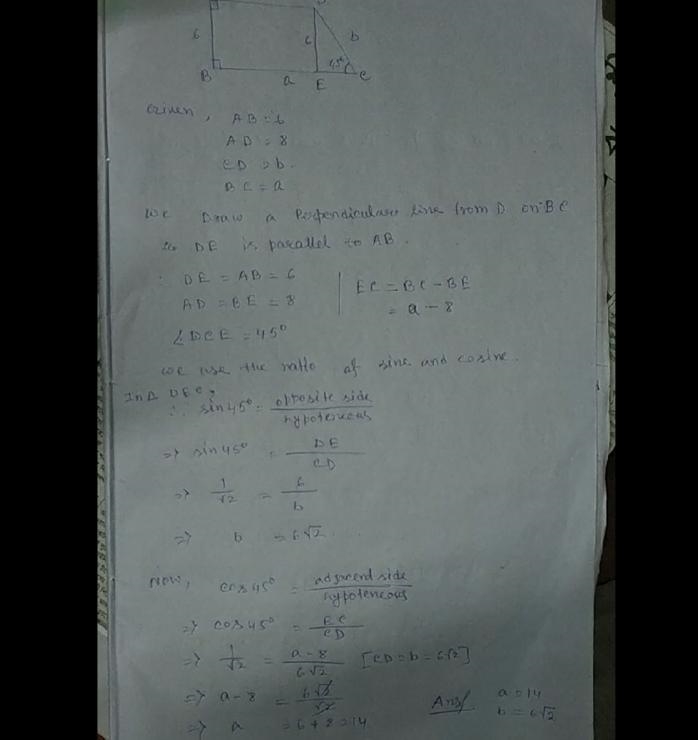 6
6
b
45°
B
a
E
C
Given, AB = 6
AD = 8
CD = b.
BC = a
We Draw a Perpendicular line from D on BC
so DE is parallel to AB.
∴ DE = AB = 6
AD = BE = 8
EC = BC - BE
= a - 8
∠DCE = 45°
we use the ratio of sine and cosine.
In Δ DEC,
∴ sin 45° = opposite side / hypoteneous
=> sin 45° = DE / CD
=> 1/√2 = 6/b
=> b = 6√2
Now, cos 45° = adjacend side / hypoteneous
=> cos 45° = EC / CD
=> 1/√2 = a-8 / 6√2 [CD = b = 6√2]
=> a-8 = 6√2 / √2
=> a = 6+8 = 14
Ans/ a = 14
b = 6√2